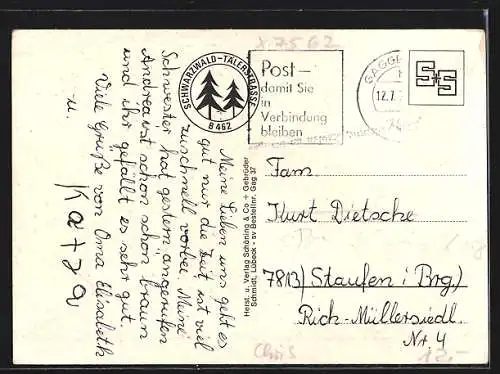 x 7562
SCHWARZWALD-TÄLERSTRASSE
B 462
Post –
damit Sie
in
Verbindung
bleiben
GAGGE
12.7.
S+S
Meine Lieben uns geht es
gut nur die Zeit ist viel
zuschnell vorbei. Meine
Schwester hat gestern angerufen
Andrea ist schon schön braun
und ihr gefällt es sehr gut.
Viele Grüße von Oma Elisabeth
u.
Katja
Herst. u. Verlag Schöning & Co + Gebrüder
Schmidt, Lübeck - sv Bestellnr. Gag 37
Fam.
Kurt Dietsche
7813/Staufen i. Brg.
Rich-Müllersiedl.
Nr. 4
Chris
12.-